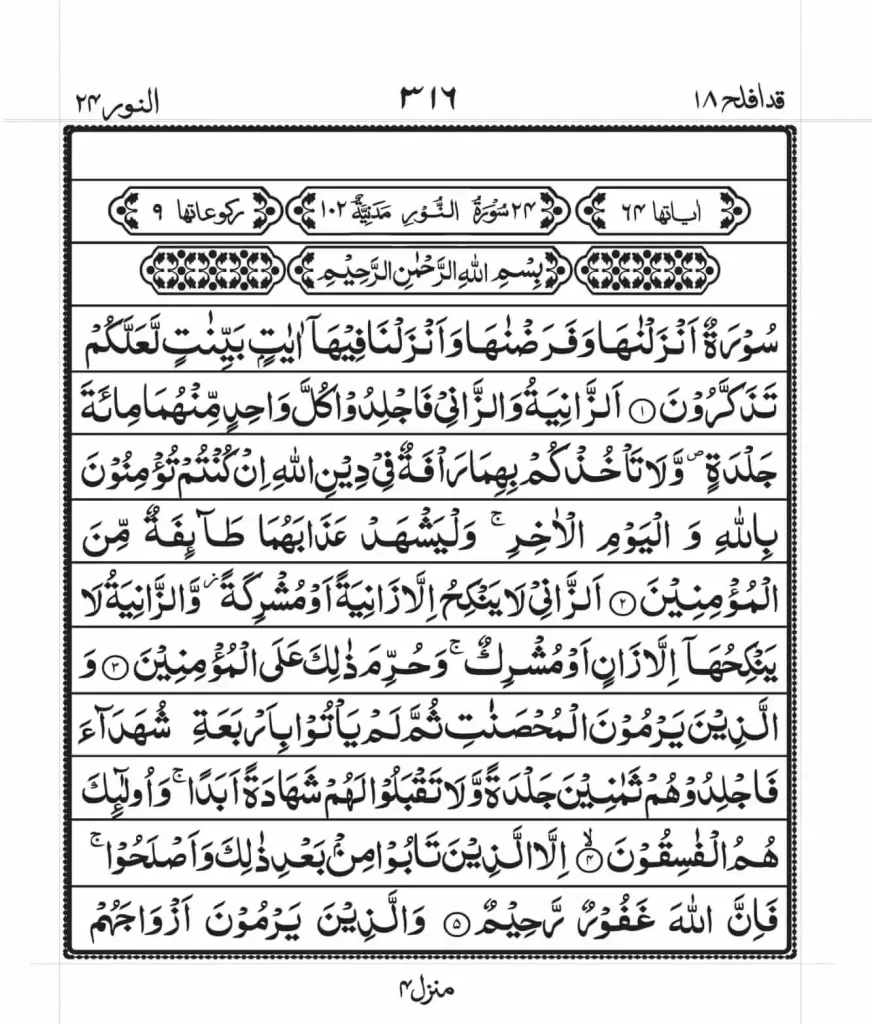 قدافلح ۱۸ ۳۱۶ النور ۲۴
اٰیاتها ۶۴ ۲۴ سُوْرَةُ النُّوْرِ مَدَنِيَّةٌ ۱۰۲ رکوعاتها ۹
بِسْمِ اللهِ الرَّحْمٰنِ الرَّحِيْمِ
سُوْرَةٌ اَنْزَلْنٰهَا وَفَرَضْنٰهَا وَاَنْزَلْنَا فِيْهَاۤ اٰيٰتٍۭ بَيِّنٰتٍ لَّعَلَّكُمْ
تَذَكَّرُوْنَ ۱ اَلزَّانِيَةُ وَالزَّانِيْ فَاجْلِدُوْا كُلَّ وَاحِدٍ مِّنْهُمَا مِائَةَ
جَلْدَةٍ ۪ وَّلَا تَاْخُذْكُمْ بِهِمَا رَاْفَةٌ فِيْ دِيْنِ اللهِ اِنْ كُنْتُمْ تُؤْمِنُوْنَ
بِاللهِ وَ الْيَوْمِ الْاٰخِرِ ۚ وَلْيَشْهَدْ عَذَابَهُمَا طَآئِفَةٌ مِّنَ
الْمُؤْمِنِيْنَ ۲ اَلزَّانِيْ لَا يَنْكِحُ اِلَّا زَانِيَةً اَوْ مُشْرِكَةً ؗ وَّالزَّانِيَةُ لَا
يَنْكِحُهَاۤ اِلَّا زَانٍ اَوْ مُشْرِكٌ ۚ وَحُرِّمَ ذٰلِكَ عَلَى الْمُؤْمِنِيْنَ ۳ وَ
الَّذِيْنَ يَرْمُوْنَ الْمُحْصَنٰتِ ثُمَّ لَمْ يَاْتُوْا بِاَرْبَعَةِ شُهَدَآءَ
فَاجْلِدُوْهُمْ ثَمٰنِيْنَ جَلْدَةً وَّلَا تَقْبَلُوْا لَهُمْ شَهَادَةً اَبَدًا ۚ وَاُولٰٓئِكَ
هُمُ الْفٰسِقُوْنَ ۙ۴ اِلَّا الَّذِيْنَ تَابُوْا مِنْۢ بَعْدِ ذٰلِكَ وَاَصْلَحُوْا ۚ
فَاِنَّ اللهَ غَفُوْرٌ رَّحِيْمٌ ۵ وَالَّذِيْنَ يَرْمُوْنَ اَزْوَاجَهُمْ
منزل ۴